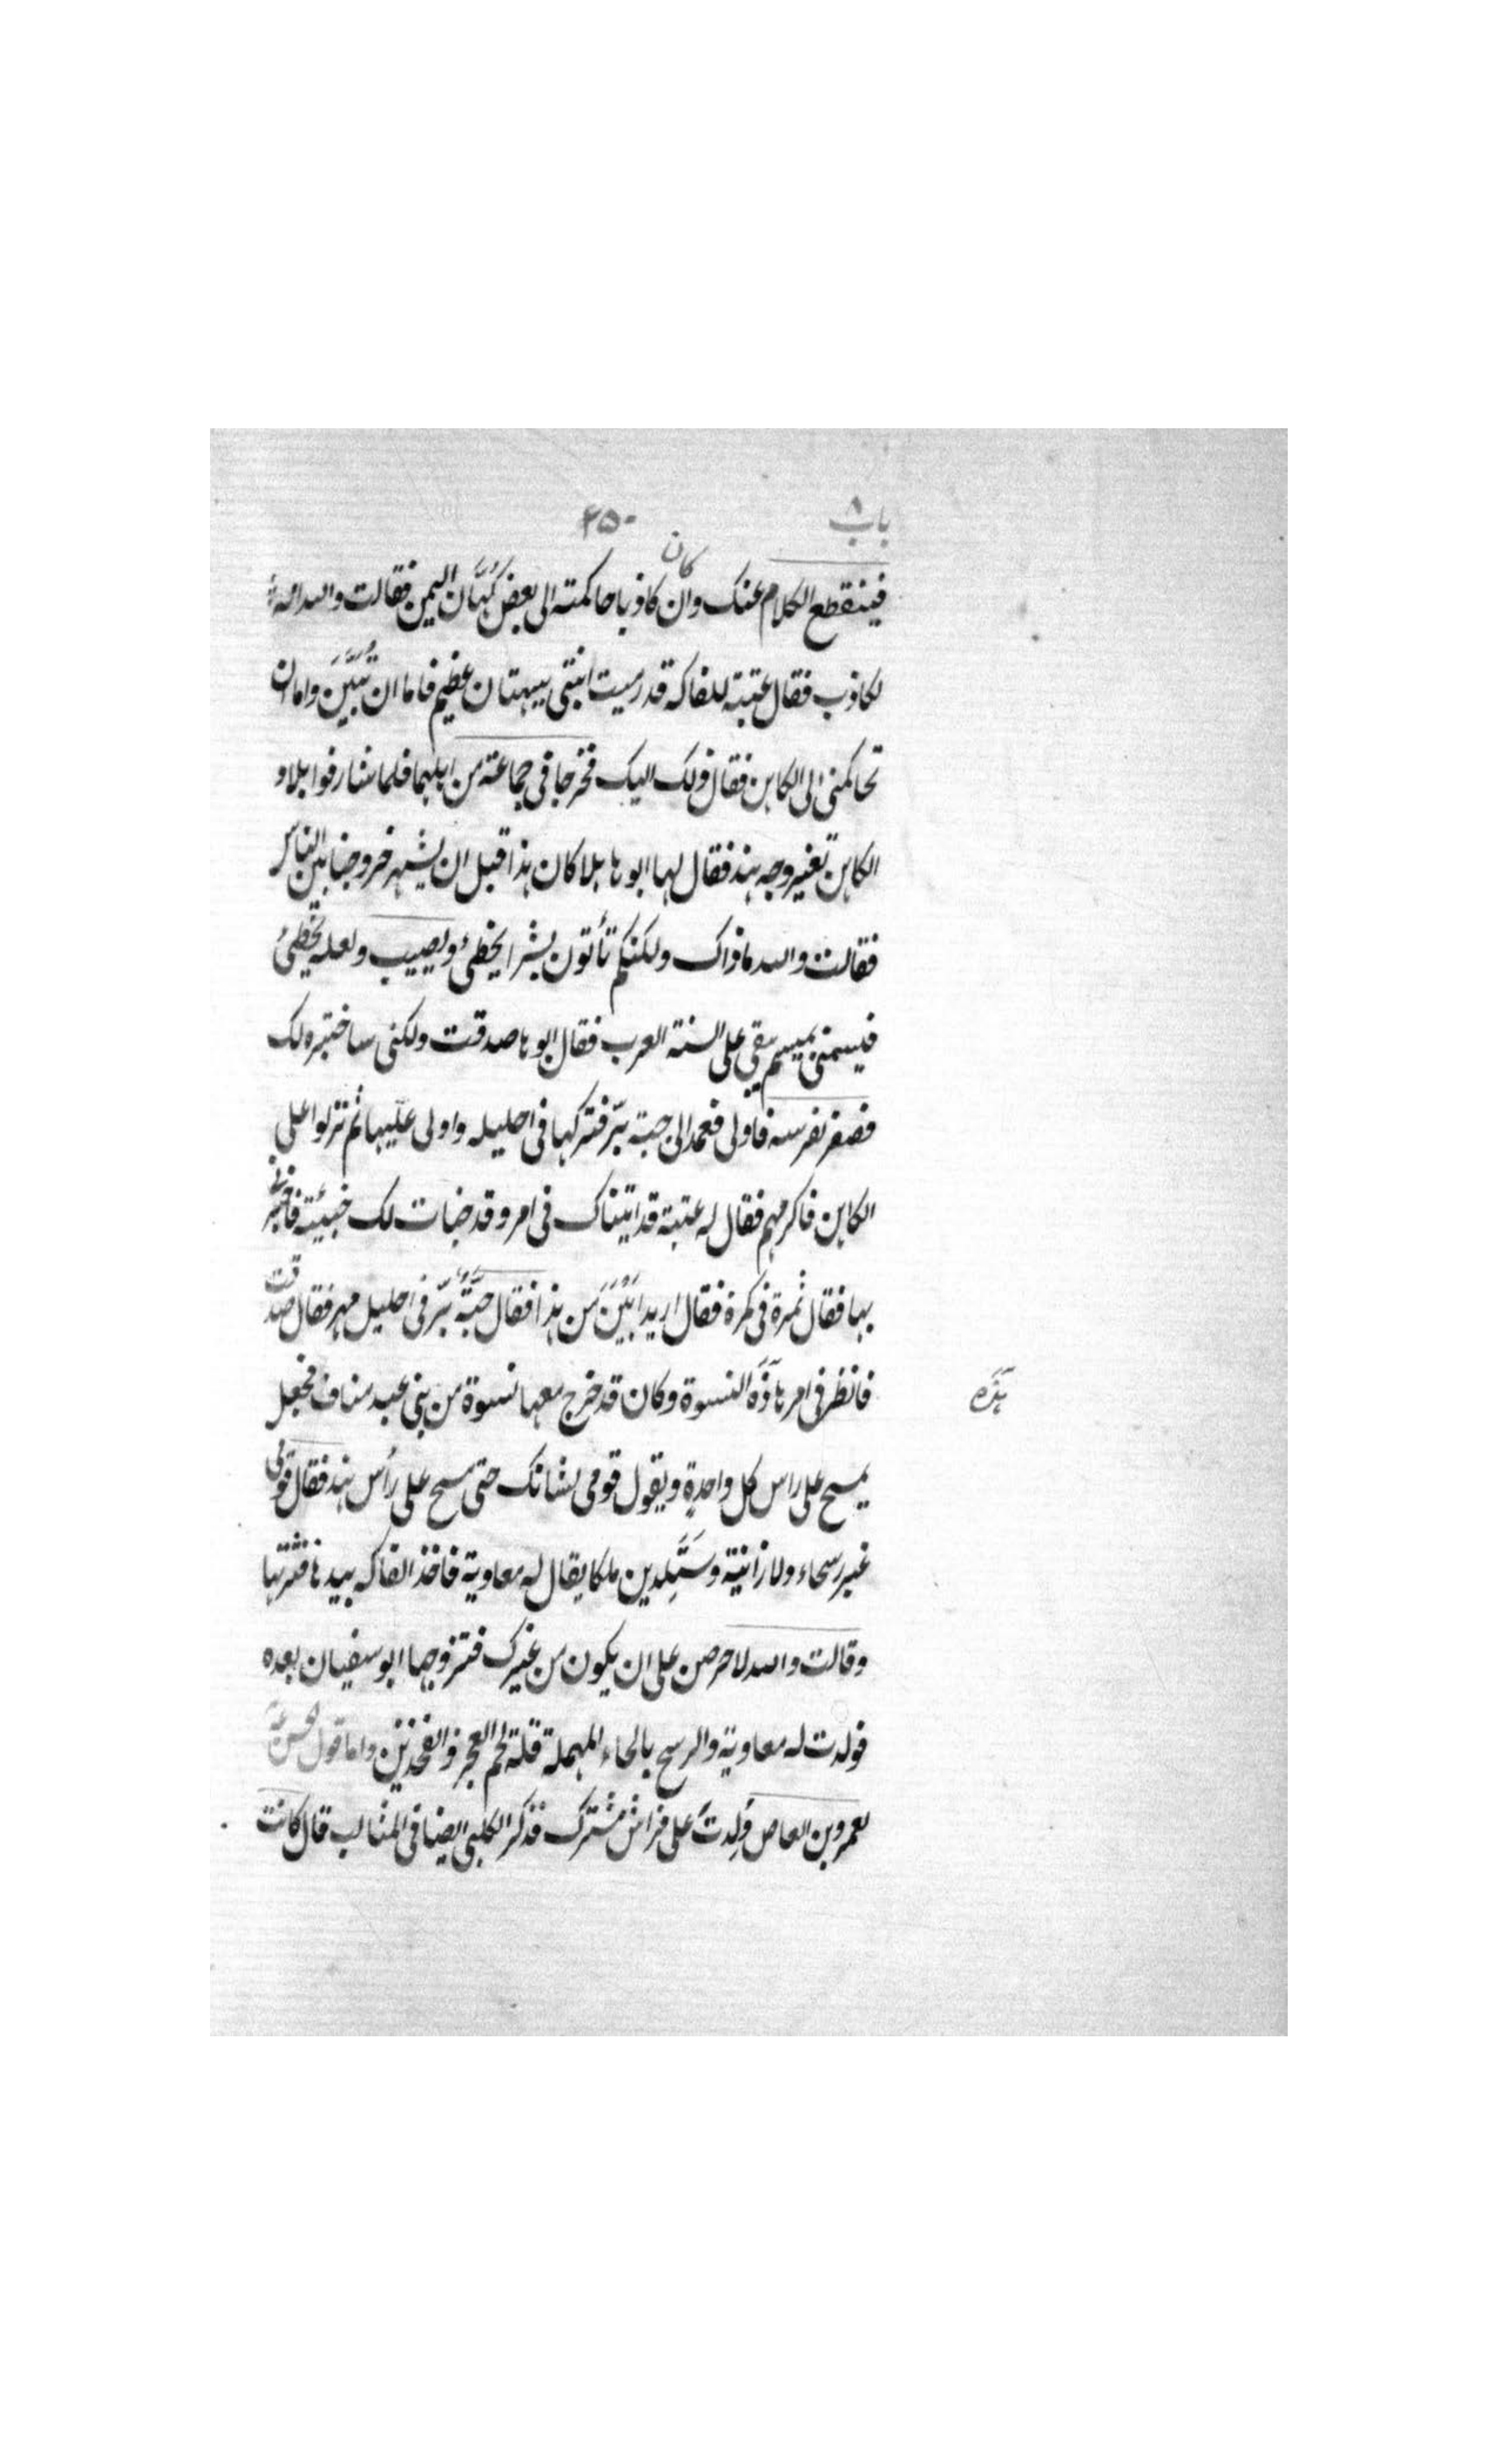 باب ٨ ٢٥٠
كان
فينقطع الكلام عنك وان كاذبا حاكمته الى بعض كُهّان اليمن فقالت والله انه
لكاذب فقال عتبة للفاكه قد رميت ابنتى ببهتان عظيم فاما ان تُبَيِّنَ واما ان
تحاكمنى الى الكاهن فقال ذلك اليك فخرجا فى جماعة من اهلهما فلما شارفوا بلاد
الكاهن تغير وجه هند فقال لها ابوها هلا كان هذا قبل ان يشهر خروجنا بين الناس
فقالت والله ما ذاك ولكنكم تأتون بشرا يخطئ ويصيب ولعله يخطئ
فيسمنى بميسم يبقى على السنة العرب فقال ابوها صدقت ولكنى ساختبره لك
فصفر بفرسه فاولى فعمد الى حبة بُرّ فتركها فى احليله واولى عليها ثم نزلوا على
الكاهن فاكرمهم فقال له عتبة قد اتيناك فى امر وقد خبات لك خبيئة فاخبرنى
بها فقال ثمرة فى كمرة فقال اريد ابْيَن من هذا فقال حَبّةُ بُرّ فى احليل مهر فقال صدقت
فانظر فى امر هاذَه النسوة وكان قد خرج معها نسوة من بنى عبد مناف فجعل
هذه
يمسح على راس كل واحدة ويقول قومى لشانك حتى مسح على رأس هند فقال قومى
غير رسحاء ولا زانية وسَتَلِدين ملكا يقال له معاوية فاخذ الفاكه بيدها فنثرتها
وقالت والله لاحرصن على ان يكون من غيرك فتزوجها ابو سفيان بعده
فولدت له معاوية والرسح بالحاء المهملة قلة لحم العجز والفخذين واما قول الحسن
لعمرو بن العاص وُلِدتَ على فراش مشترك فذكر الكلبى ايضا فى المثالب قال كانت